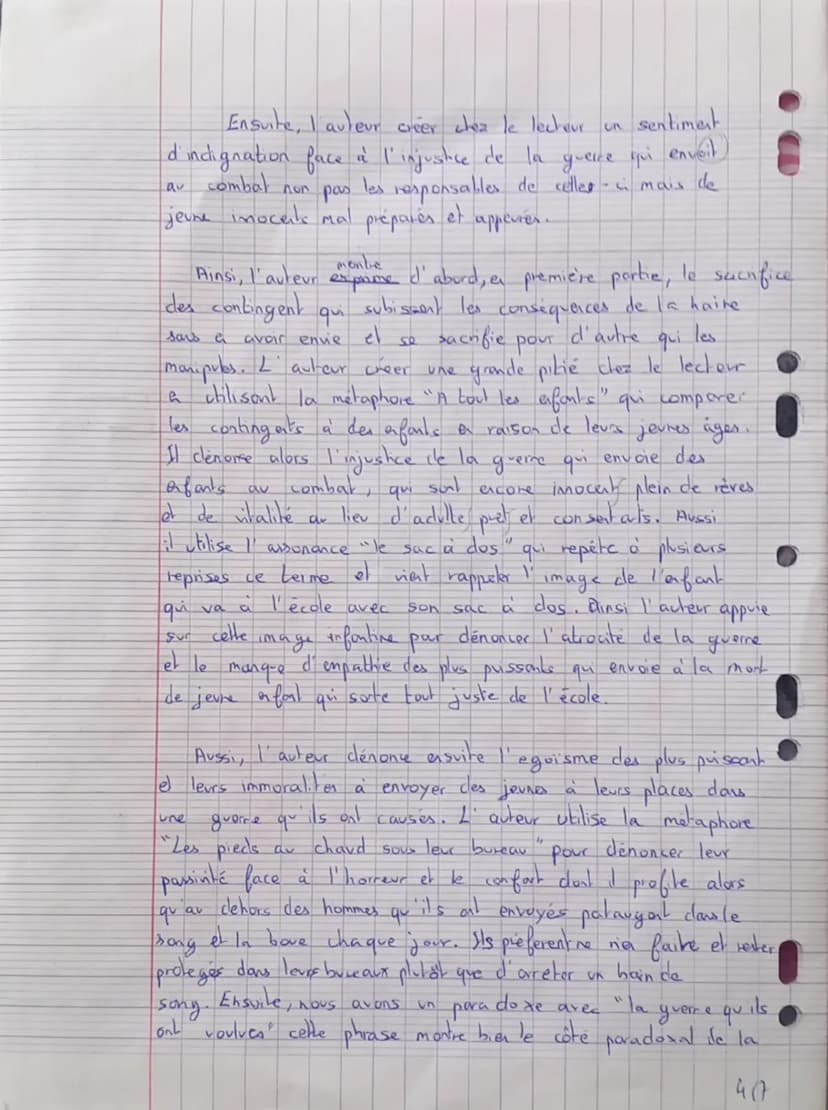 Ensuite, l'auteur créer chez le lecteur un sentiment
d'indignation face à l'injustice de la guerre qui envoit
au combat non pas les responsables de celles-ci mais de
jeune inocents mal préparés et appeurés.
Ainsi, l'auteur montre d'abord, en première partie, le sacrifice
des contingent qui subissent les conséquences de la haine
sans en avoir envie et se sacrifie pour d'autre qui les
manipules. L'auteur créer une grande pitié chez le lecteur
en utilisant la métaphore "A tout les enfants" qui compare
les contingents à des enfants en raison de leurs jeunes âges.
Il dénonce alors l'injustice de la guerre qui envoie des
enfants au combat, qui sont encore innocent, plein de rêves
et de vitalité au lieu d'adulte prêt et consentants. Aussi
il utilise l'assonance "le sac à dos" qui repète à plusieurs
reprises ce terme et vient rappeler l'image de l'enfant
qui va à l'école avec son sac à dos. Ainsi l'auteur appuie
sur cette image infantine pour dénoncer l'atrocité de la guerre
et le manque d'empathie des plus puissants qui envoie à la mort
de jeune enfant qui sorte tout juste de l'école.
Aussi, l'auteur dénonce ensuite l'egoïsme des plus puissant
et leurs immoralités à envoyer des jeunes à leurs places dans
une guerre qu'ils ont causés. L'auteur utilise la métaphore
"Les pieds au chaud sous leur bureau" pour dénoncer leur
passivité face à l'horreur et le confort dont il profite alors
qu'au dehors des hommes qu'ils ont envoyés pataugent dans le
sang et la boue chaque jour. Ils préferent ne rien faire et rester
protegés dans leurs bureaux plutôt que d'arreter un bain de
sang. Ensuite, nous avons un paradoxe avec "la guerre qu'ils
ont voulues" cette phrase montre bien le côté paradoxal de la
4/7